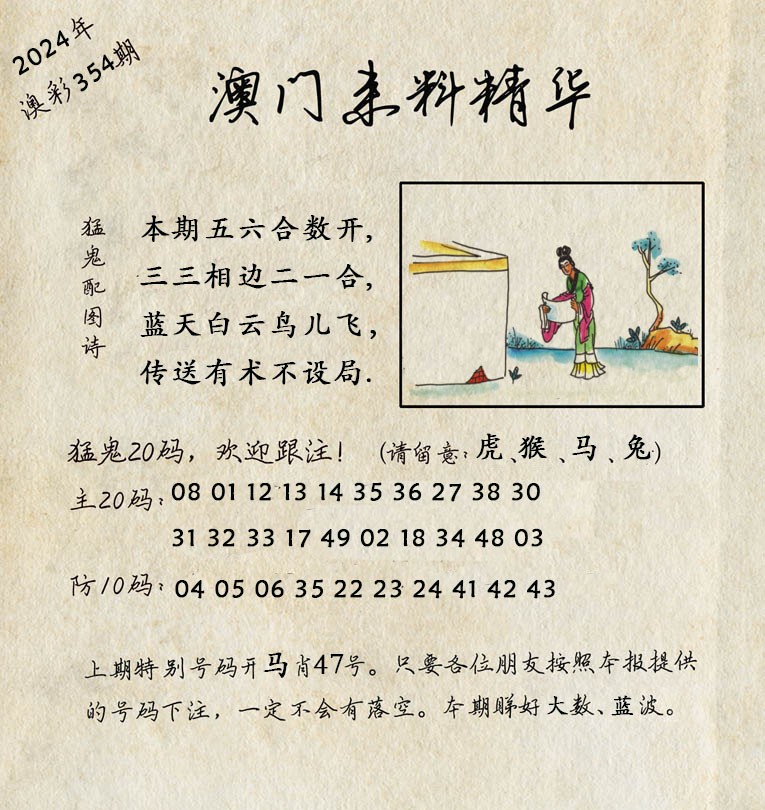 2024年
澳彩354期
澳门来料精华
猛鬼配图诗
本期五六合数开,
三三相边二一合,
蓝天白云鸟儿飞,
传送有术不设局.
猛鬼20码，欢迎跟注！（请留意：虎、猴、马、兔）
主20码：08 01 12 13 14 35 36 27 38 30
31 32 33 17 49 02 18 34 48 03
防10码：04 05 06 35 22 23 24 41 42 43
上期特别号码开马肖47号。只要各位朋友按照本报提供
的号码下注，一定不会有落空。本期睇好大数、蓝波。